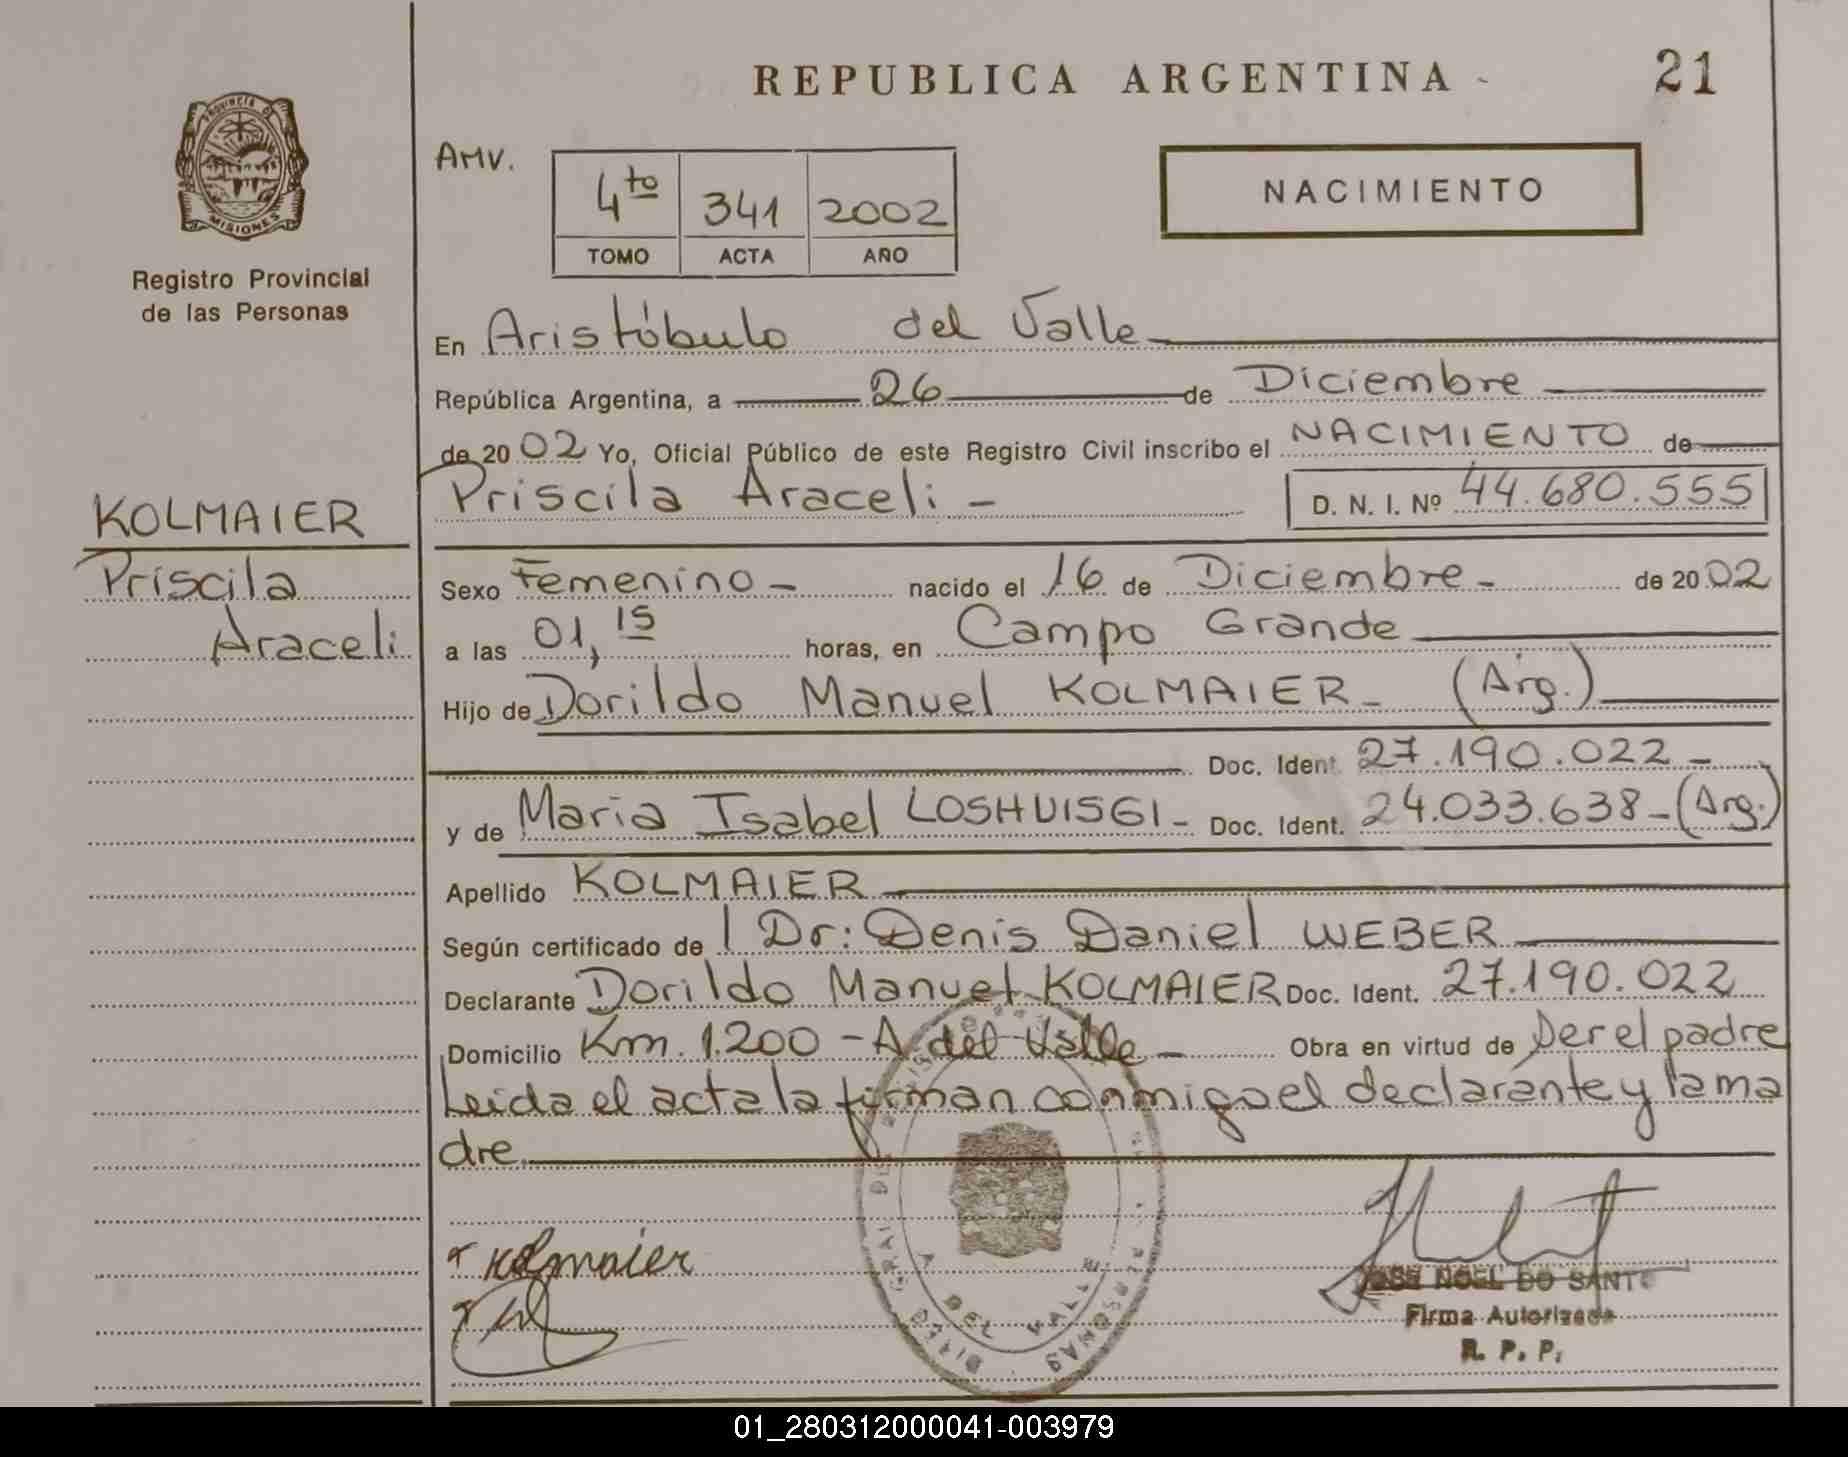 REPUBLICA ARGENTINA
21
PROVINCIA D
MISIONES
Registro Provincial
de las Personas
AMV.
4to 341 2002
TOMO ACTA AÑO
NACIMIENTO
En Aristóbulo del Valle
República Argentina, a 26 de Diciembre
de 2002 Yo, Oficial Público de este Registro Civil inscribo el NACIMIENTO de
Priscila Araceli - D. N. I. Nº 44.680.555
KOLMAIER
Priscila
Araceli
Sexo Femenino - nacido el 16 de Diciembre - de 2002
a las 01,15 horas, en Campo Grande
Hijo de Dorildo Manuel KOLMAIER - (Arg.)
Doc. Ident. 27.190.022 -
y de Maria Isabel LOSHUISGI - Doc. Ident. 24.033.638 - (Arg.)
Apellido KOLMAIER
Según certificado de Dr: Denis Daniel WEBER
Declarante Dorildo Manuel KOLMAIER Doc. Ident. 27.190.022
Domicilio Km. 1.200 - A. del Valle - Obra en virtud de ser el padre
Leida el acta la firman conmigo el declarante y la ma
dre.
Kolmaier
A. DEL VALLE
JOSE NOEL DO SANTO
Firma Autorizada
R. P. P.
01_280312000041-003979